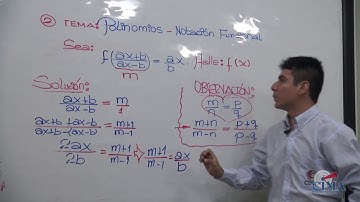 ② TEMA: Polinomios - Notación Funcional
Sea: f((ax+b)/(ax-b)) = ax/b . Halle: f(x)
m
Solución:
(ax+b)/(ax-b) = m/1
(ax+b+ax-b)/(ax+b-(ax-b)) = (m+1)/(m-1)
2ax/2b = (m+1)/(m-1) ⇒ (m+1)/(m-1) = ax/b
OBSERVACIÓN:
m/n = p/q
→ (m+n)/(m-n) = (p+q)/(p-q)
CIMA